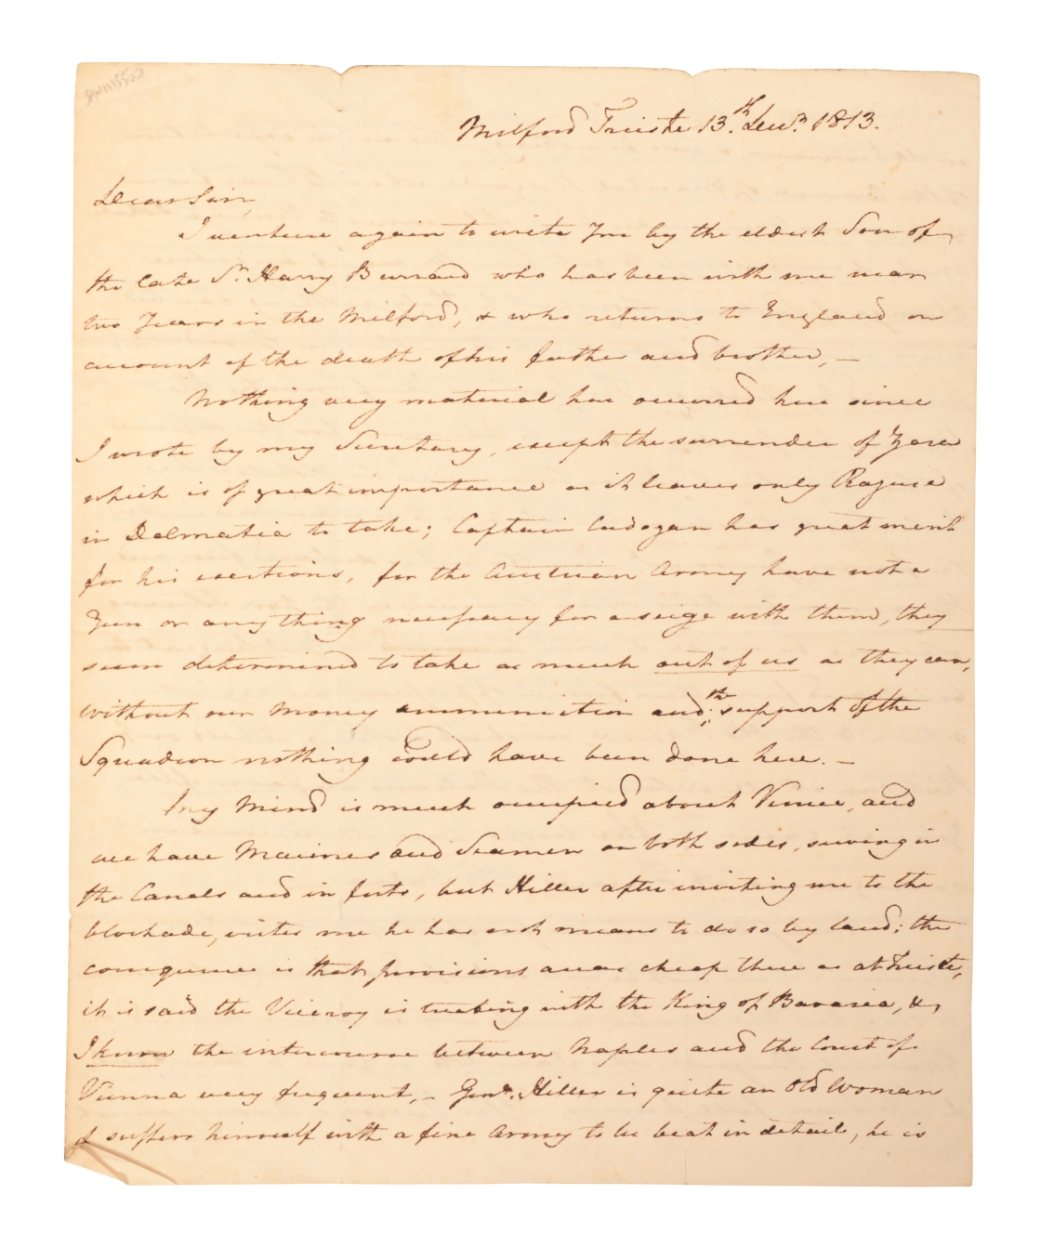 Milford Trieste 13.th Decr. 1813.
Dear Sir,
I venture again to write You by the eldest Son of
the late Sr. Harry Burrard who has been with me near
two Years in the Milford, & who returns to England on
account of the death of his father and brother, —
Nothing very material has occurred here since
I wrote by my Secretary, except the surrender of Zara
which is of great importance as it leaves only Ragusa
in Dalmatia to take; Captain Cadogan has great merit
for his exertions, for the Austrian Army have not a
Gun or any thing necessary for a seige with them, they
seem determined to take as much out of us as they can,
without our Money ammunition and the support of the
Squadron nothing could have been done here. —
My Mind is much occupied about Venice, and
we have Marines and Seamen on both sides, serving in
the Canals and in forts, but Hiller after inviting me to the
blockade, writes me he has not means to do so by land; the
consequence is that provisions are as cheap there as at Trieste,
it is said the Viceroy is treating with the King of Bavaria, &,
I know the intercourse between Naples and the Court of
Vienna very frequent, — Genl. Hiller is quite an Old Woman
& suffers himself with a fine Army to be beat in detail, he is